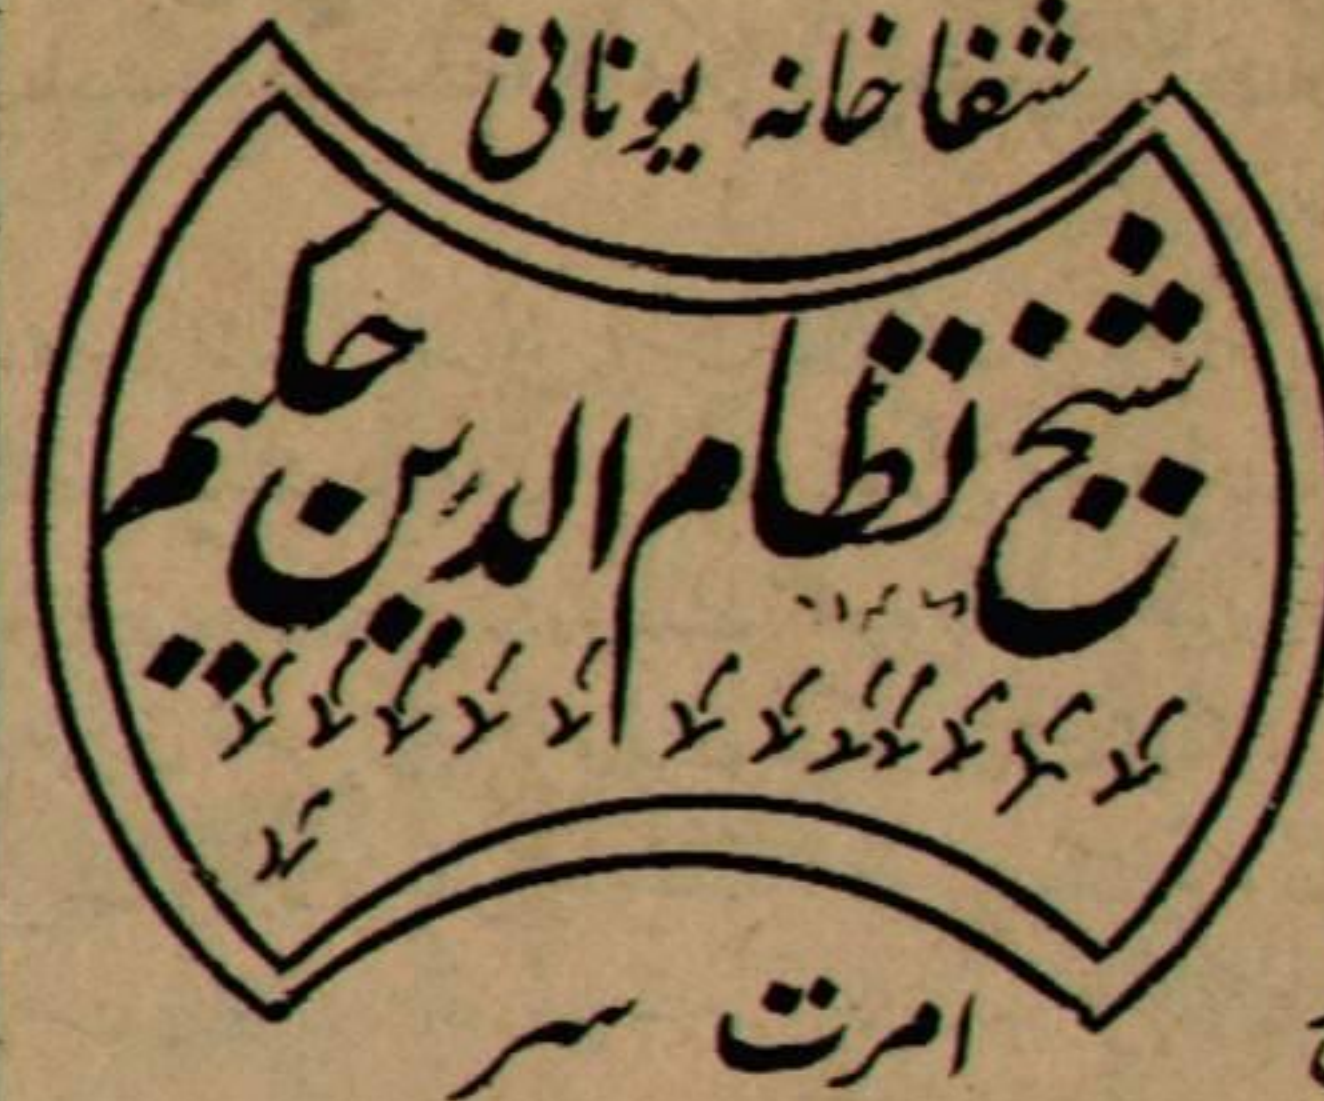 شفاخانہ یونانی
شیخ نظام الدین حکیم
امرت سر